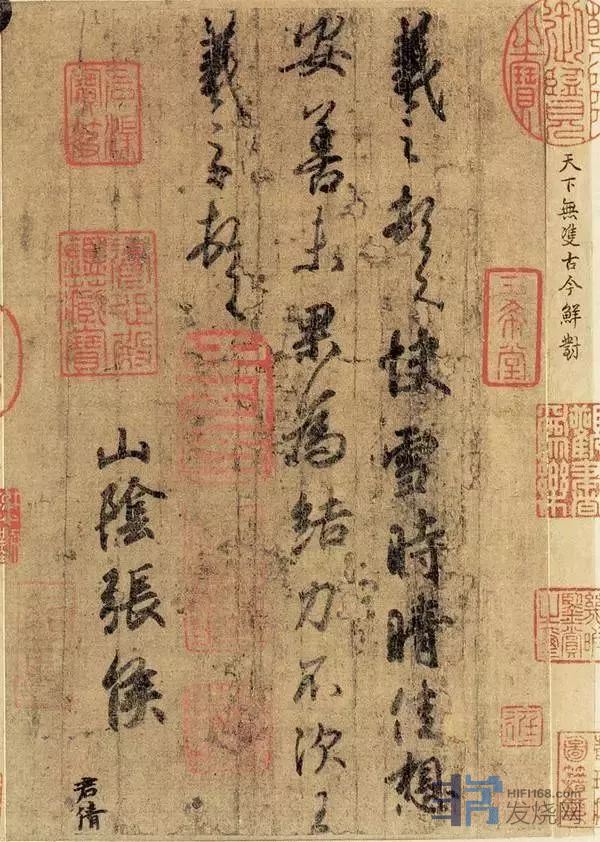 天下無雙古今鮮對
三希堂
羲之頓首快雪時晴佳想
安善未果為結力不次王
羲之頓首
山陰張侯
君倩
養心殿鑑藏寶
HIFI168.com
发烧网